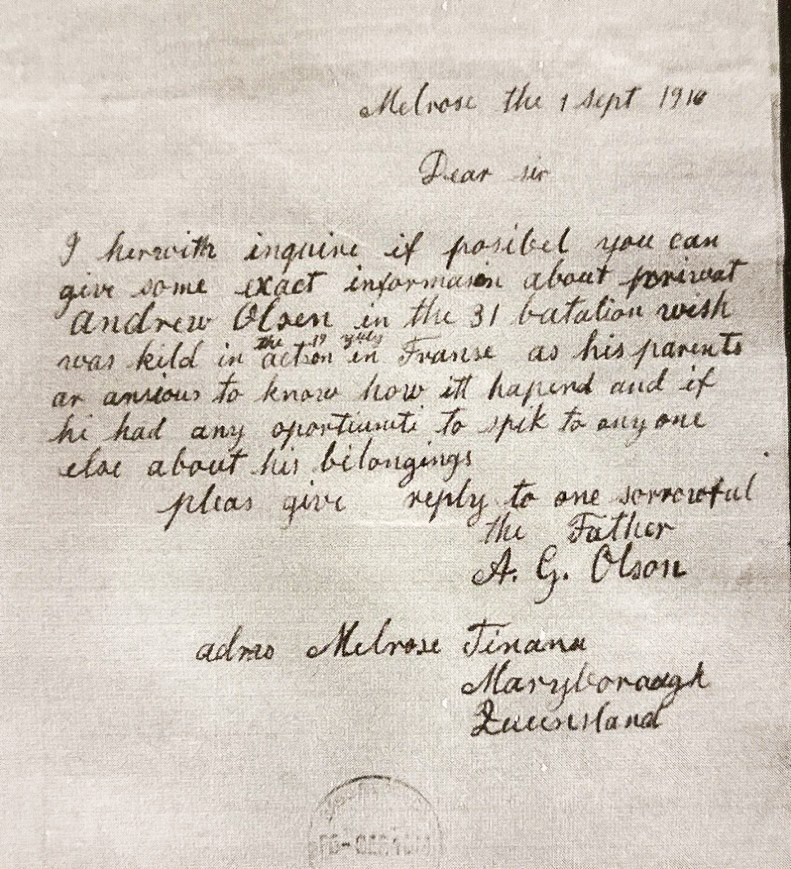 Melrose the 1 Sept 1916
Dear sir
I herwith inquire if posibel you can
give some exact informasion about priwat
Andrew Olsen in the 31 batalion wish
the 19 July
was kild in action in Franse as his parents
ar ansious to know how itt hapend and if
he had any oportiuniti to spik to any one
else about his belongings
pleas give reply to one sorrowful
the Father
A. G. Olson
adres Melrose Tinana
Maryborough
Queensland